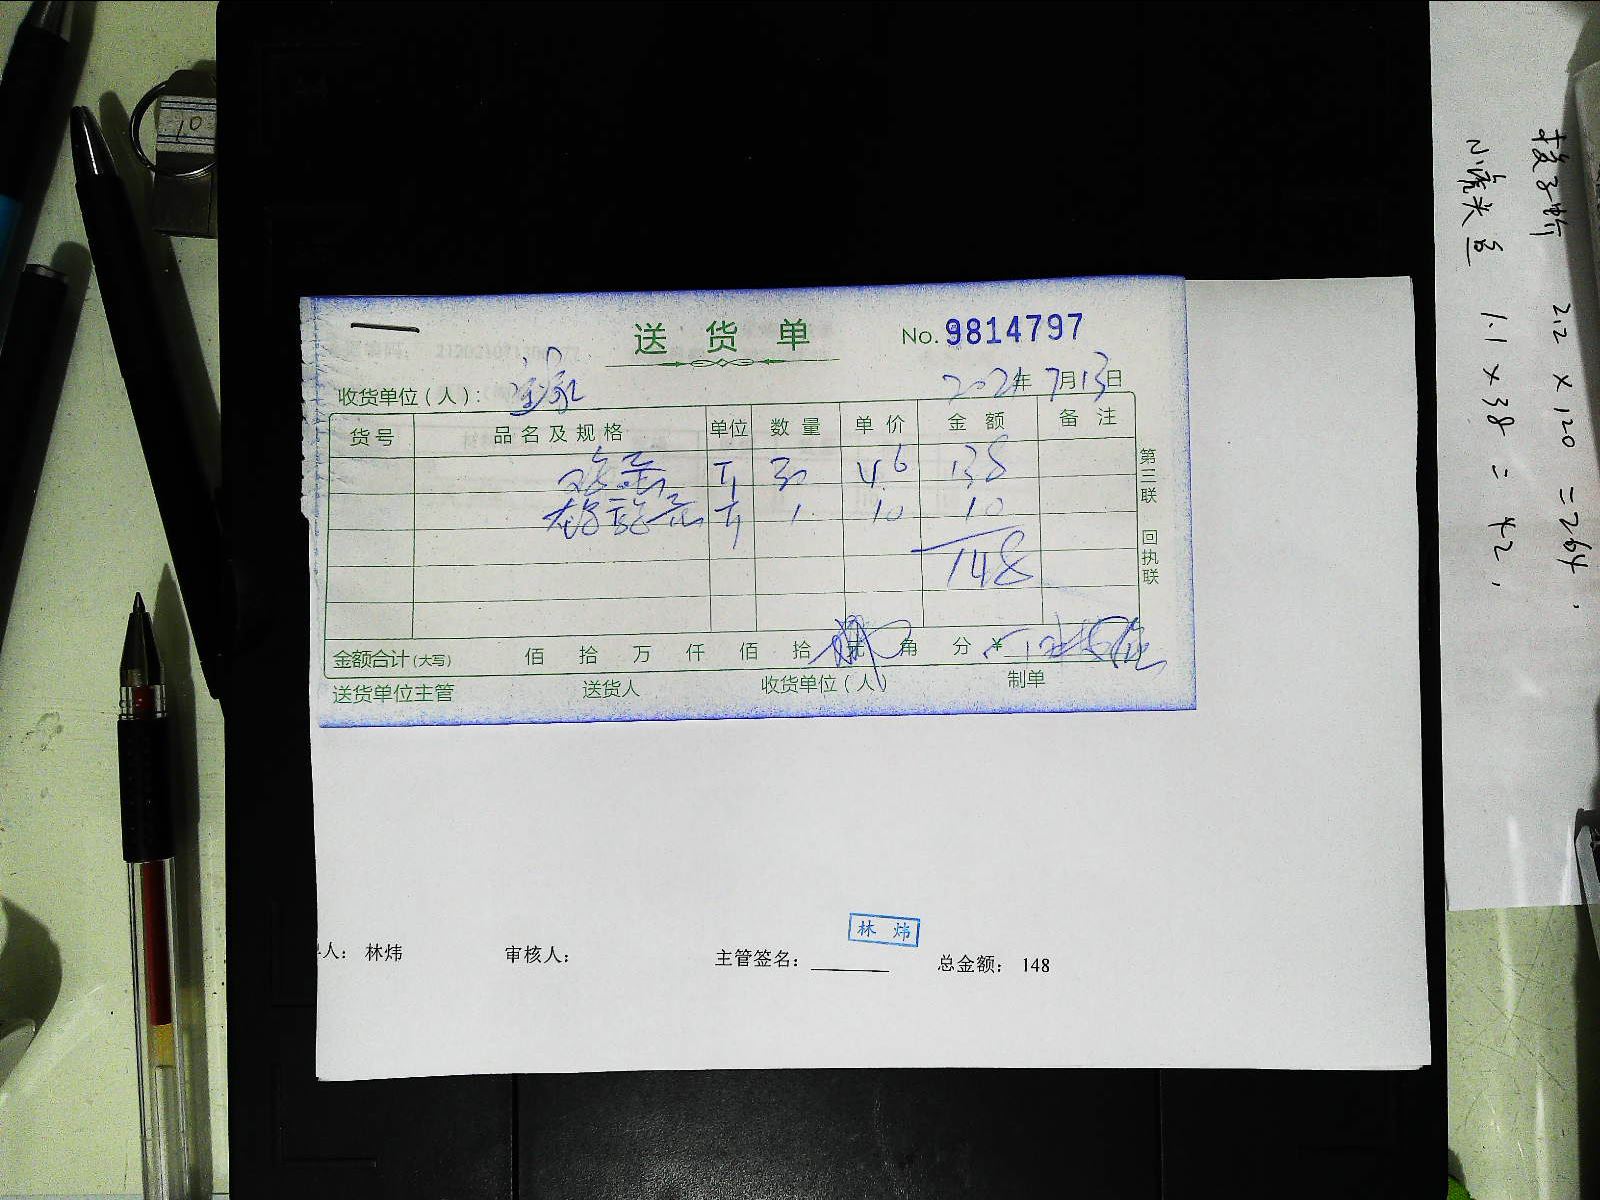 送货单 No. 9814797
收货单位(人):
2021年 7月13日
货号 品名及规格 单位 数量 单价 金额 备注
鸡蛋 斤 30 4.6 138
斤 1 10 10
148
第三联 回执联
金额合计(大写) 佰 拾 万 仟 佰 拾 元 角 分 ¥
送货单位主管 送货人 收货单位(人) 制单
林炜
人: 林炜 审核人: 主管签名: 总金额: 148
10
2.2 × 120 = 264.
小 头 1.1 × 38 = 42.